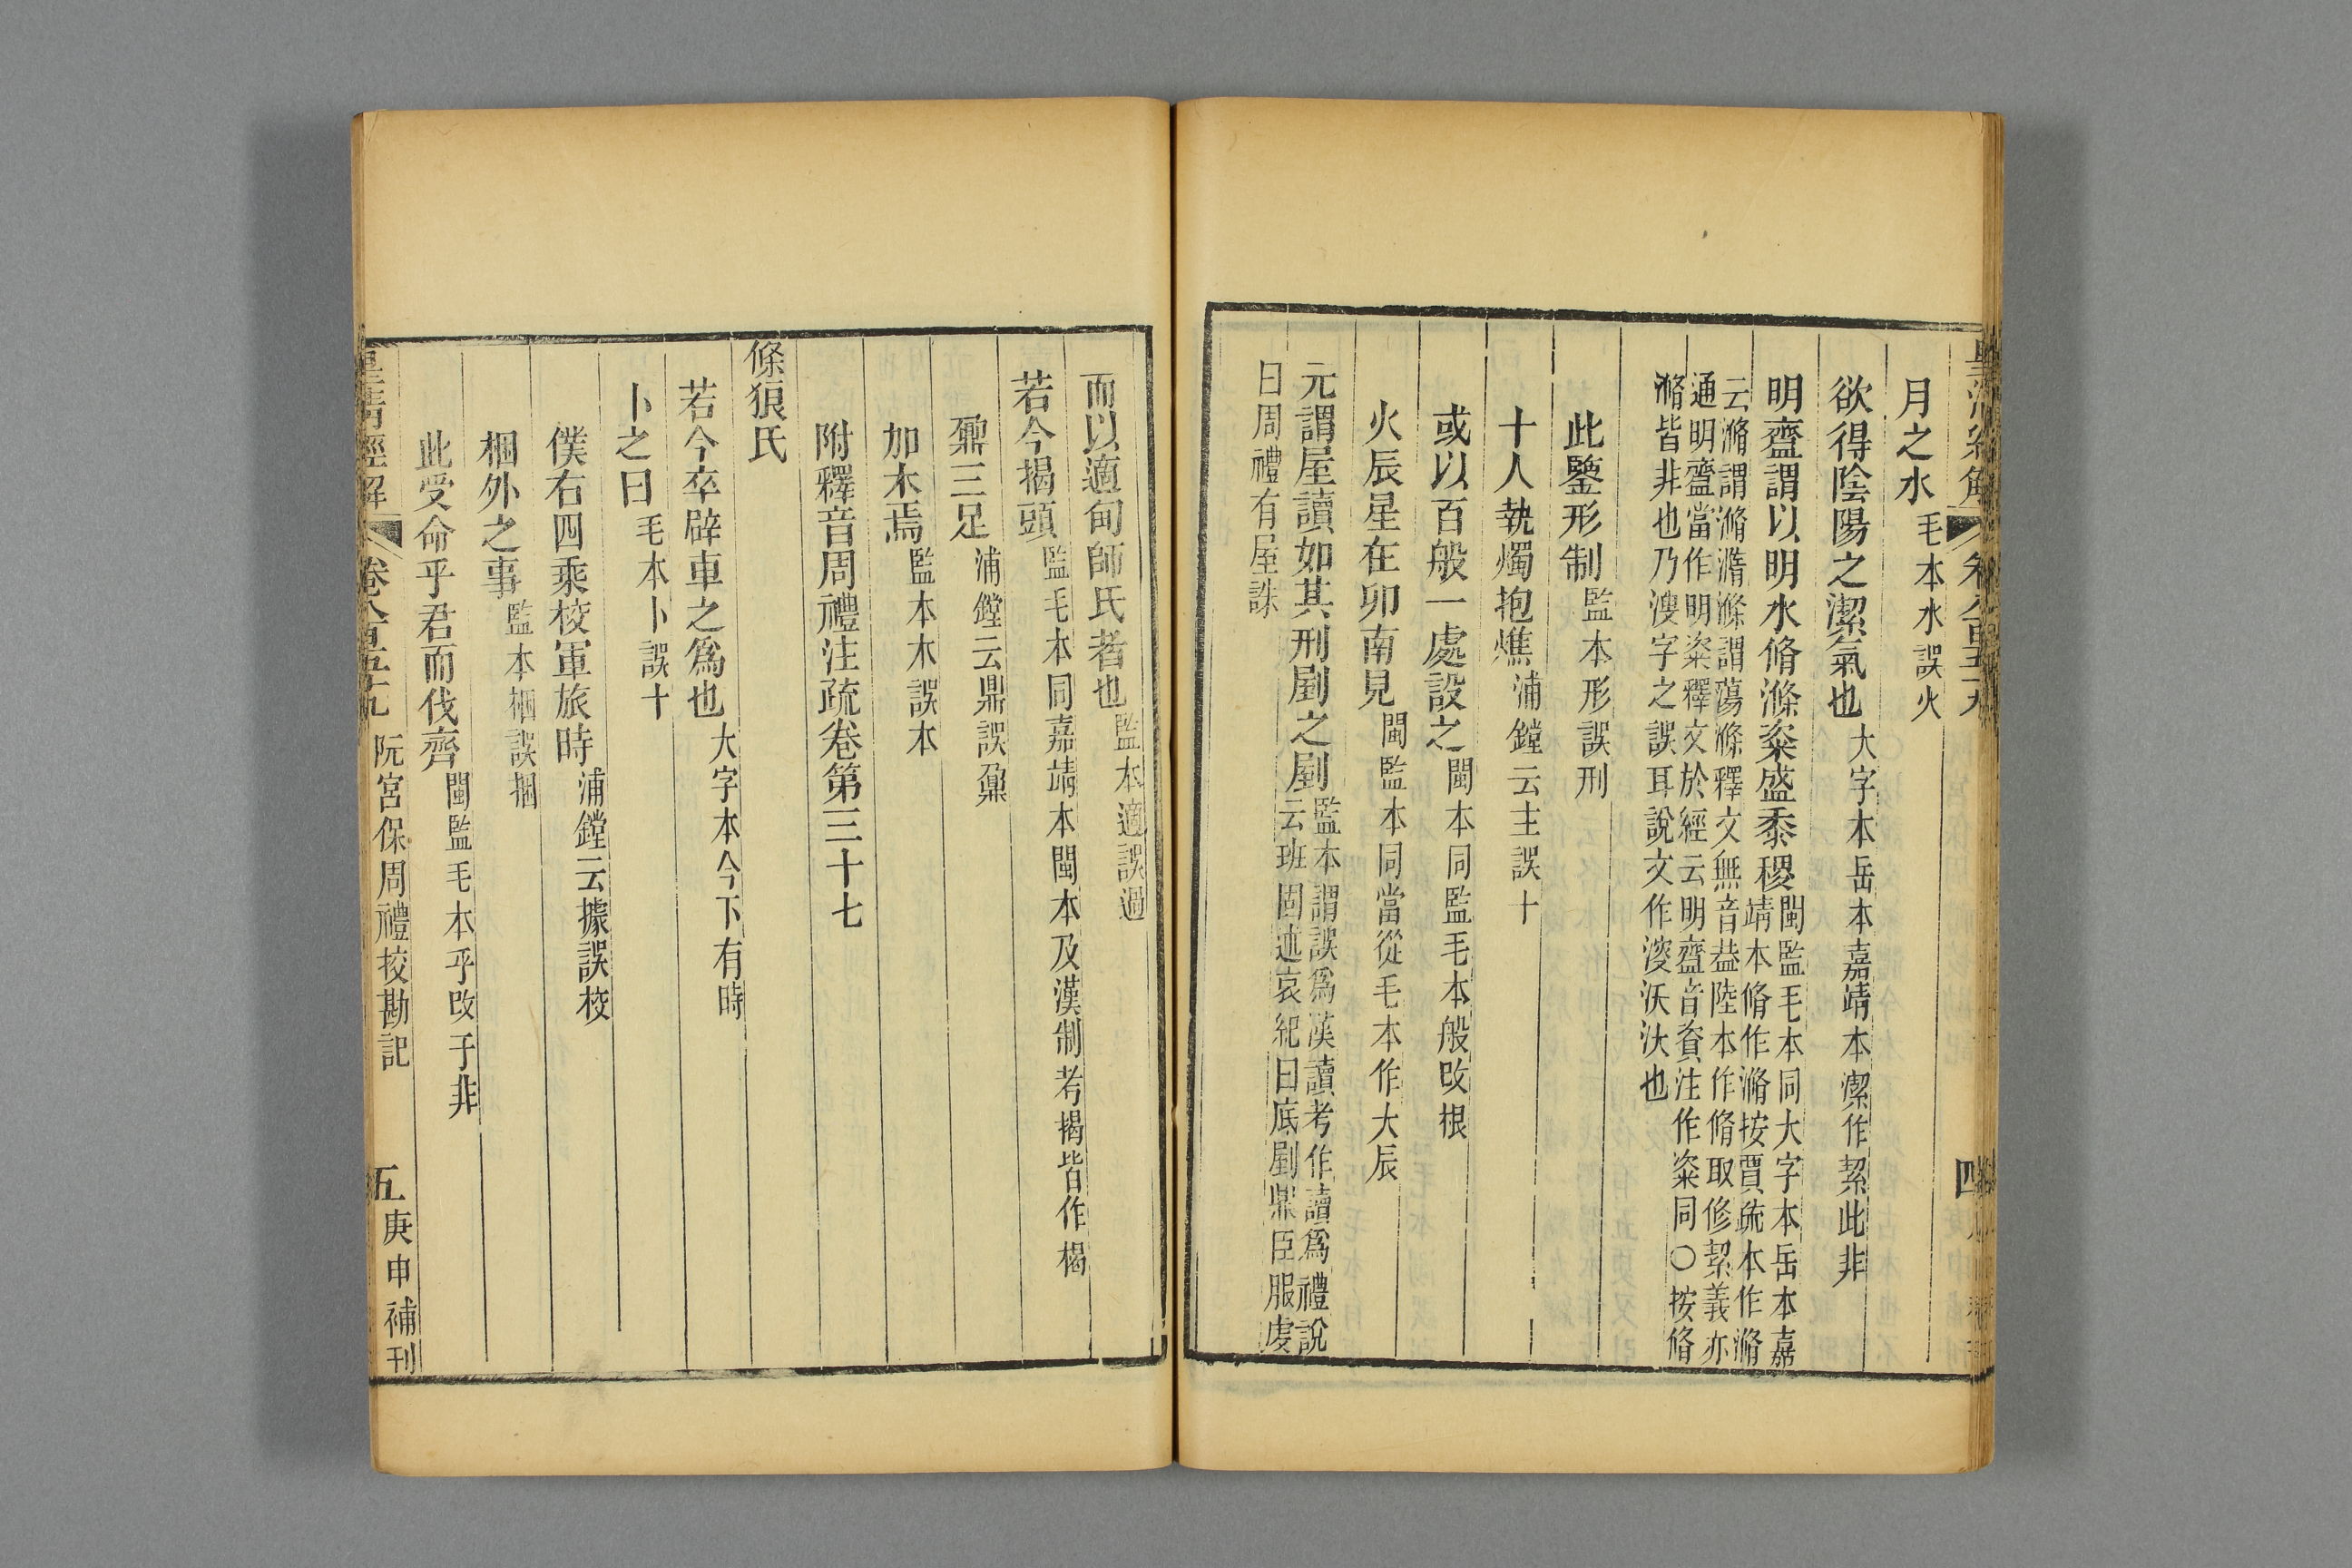 月之水毛本水誤火
欲得陰陽之潔氣也大字本岳本嘉靖本潔作絜此非
明齍謂以明水脩滌粢盛黍稷閩監毛本同大字本岳本嘉
靖本脩作滫按賈疏本作滫
云滫謂滫濇滌謂蕩滌釋文無音葢陸本作脩取修絜義亦
通明齍當作明粢釋文於經云明齍音資注作粢同○按脩
滫皆非也乃溲字之誤耳說文作浚沃汏也
此鑒形制監本形誤刑
十人執燭抱燋浦鏜云主誤十
或以百般一處設之閩本同監毛本般改根
火辰星在卯南見閩監本同當從毛本作大辰
元謂屋讀如其刑剭之剭監本謂誤爲漢讀考作讀爲禮說
云班固述哀紀曰底剭鼎臣服虔
曰周禮有屋誅
而以適甸師氏者也監本適誤過
若今揭頭監毛本同嘉靖本閩本及漢制考揭皆作楬
鼏三足浦鏜云鼎誤鼐
加木焉監本木誤本
附釋音周禮注疏卷第三十七
條狼氏
若今卒辟車之爲也大字本今下有時
卜之曰毛本卜誤十
僕右四乘校軍旅時浦鏜云據誤校
梱外之事監本梱誤捆
此受命乎君而伐齊閩監毛本乎改于非
皇清經解 卷八百五十九 阮宮保周禮挍勘記 五 庚申補刊